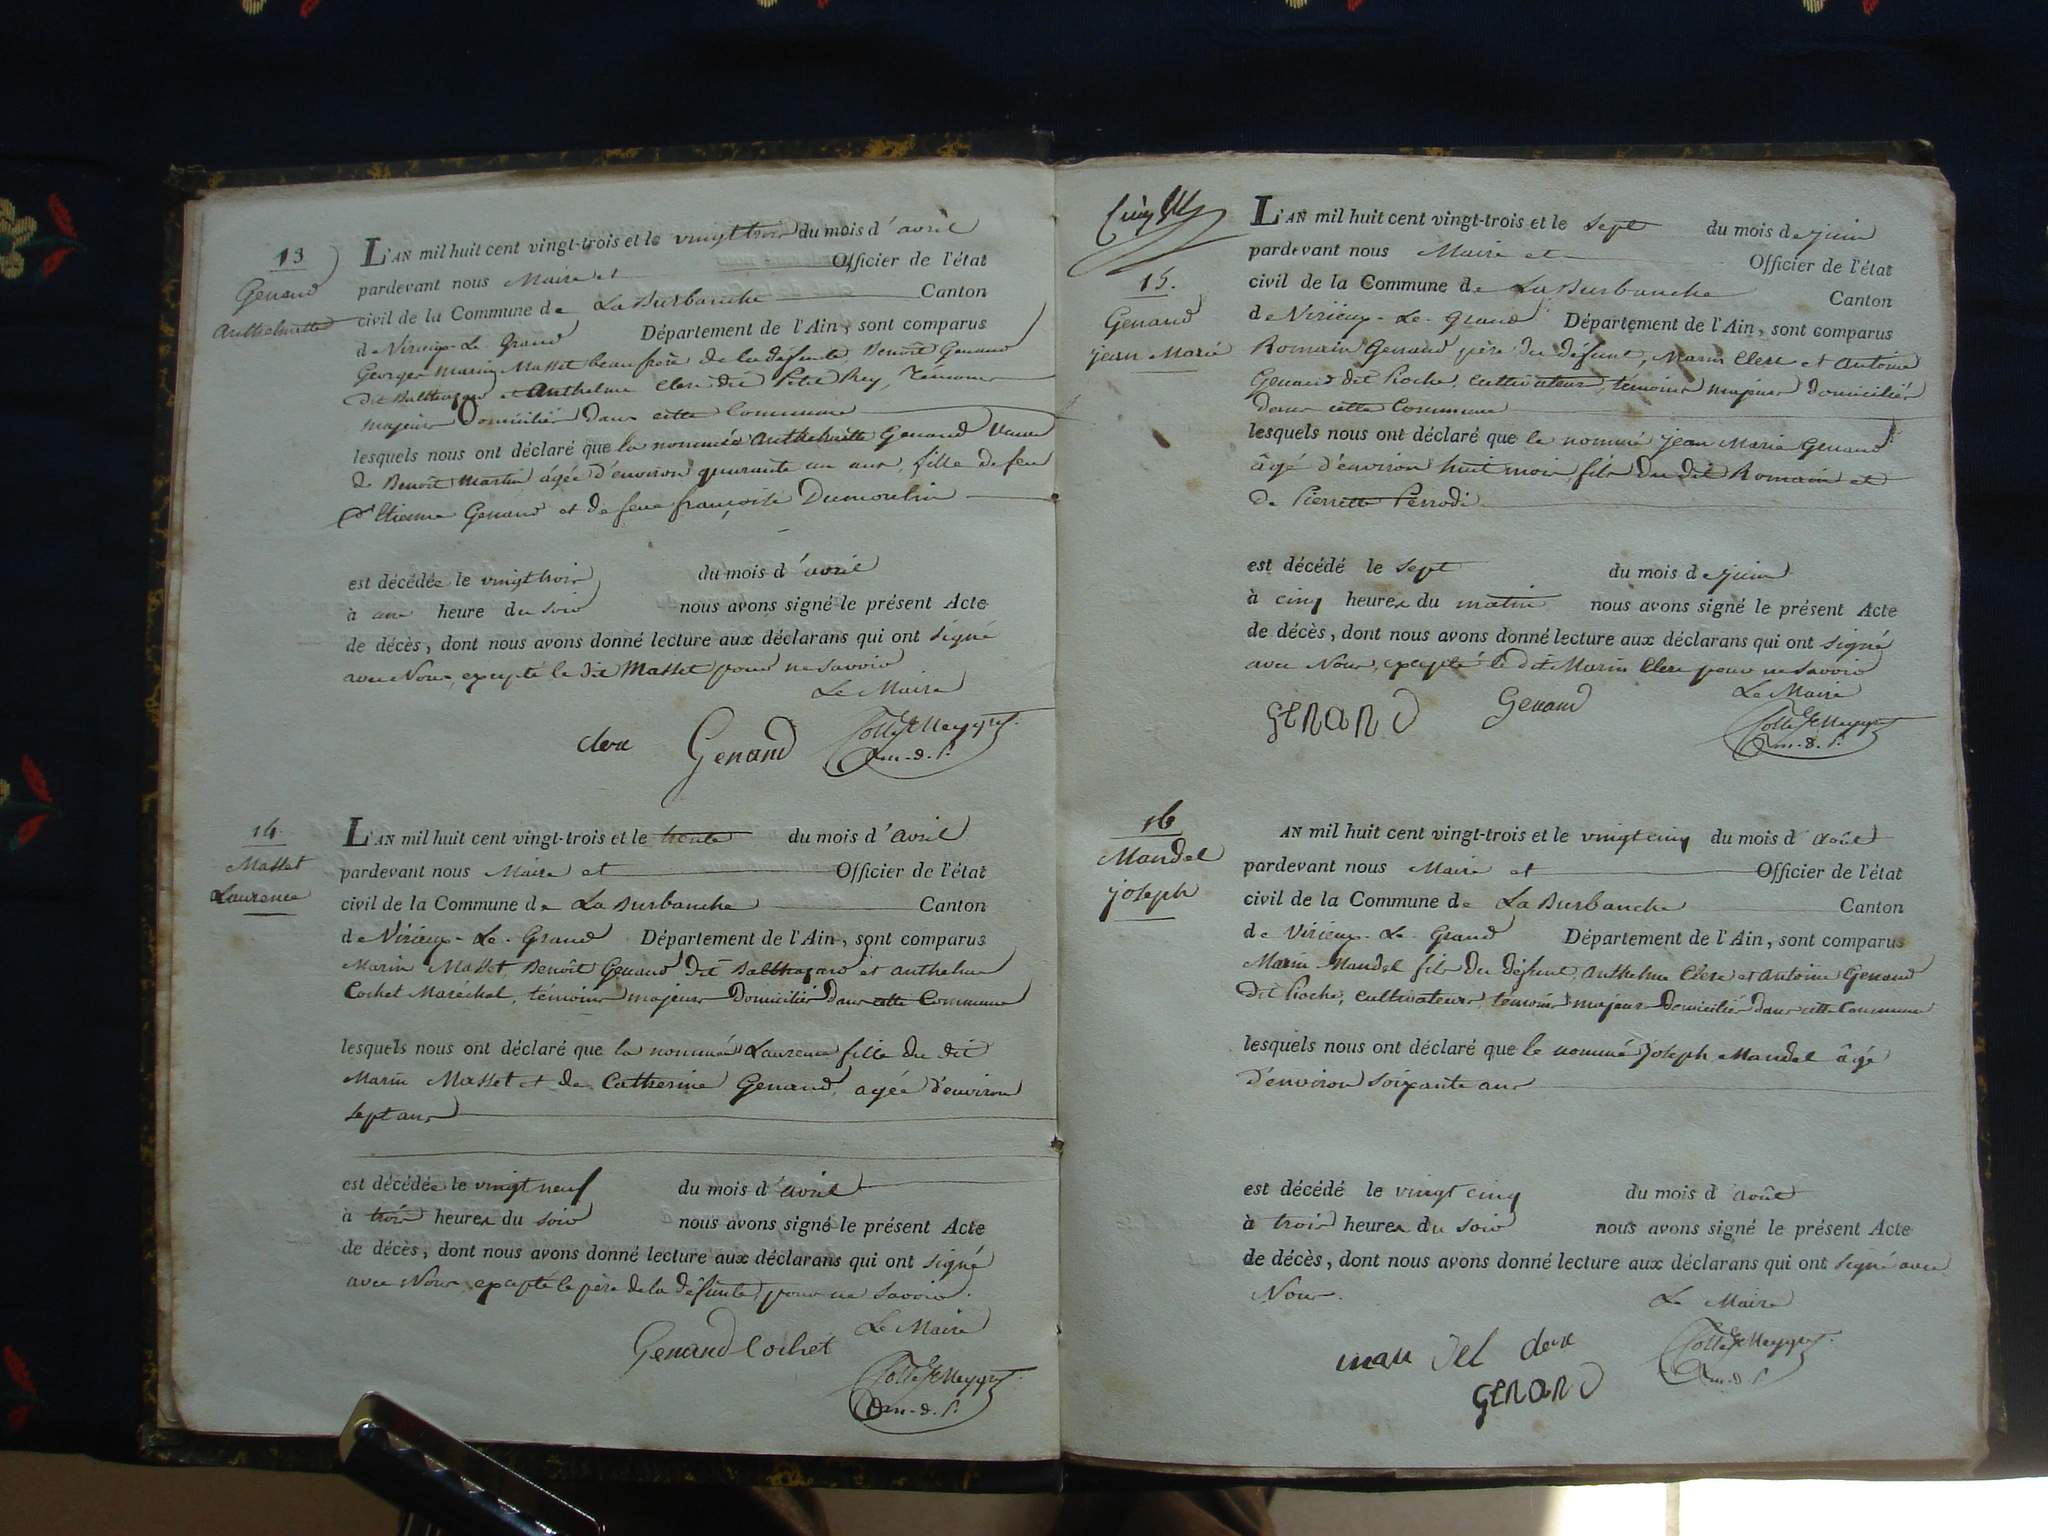 13
Genand
Anthelmette
L'AN mil huit cent vingt-trois et le vingt trois du mois d'avril
pardevant nous Maire et Officier de l'état
civil de la Commune de La Burbanche Canton
de Virieux-Le-Grand Département de l'Ain, sont comparus
Georges Marin Masset beau frère de la défunte, Benoît Genand
dit Balthazard et Anthelme Clerc dit Petit Rey, témoins
majeurs domiciliés dans cette Commune
lesquels nous ont déclaré que la nommée Anthelmette Genand veuve
de Benoît Martin âgée d'environ quarante un ans, fille de feu
d'Etienne Genand et de feue françoise Dumoulin
est décédée le vingt trois du mois d'avril
à une heure du soir nous avons signé le présent Acte
de décès, dont nous avons donné lecture aux déclarans qui ont signé
avec Nous, excepté le dit Masset pour ne savoir
Le Maire
clerc Genand
14
Masset
Laurence
L'AN mil huit cent vingt-trois et le trente du mois d'avril
pardevant nous Maire et Officier de l'état
civil de la Commune de La Burbanche Canton
de Virieux-Le-Grand Département de l'Ain, sont comparus
Marin Masset, Benoît Genand dit Balthazard et anthelme
Cochet Maréchal, témoins majeurs domiciliés dans cette Commune
lesquels nous ont déclaré que la nommée Laurence fille du dit
Marin Masset et de Catherine Genand, agée d'environ
sept ans
est décédée le vingt neuf du mois d'avril
à trois heures du soir nous avons signé le présent Acte
de décès, dont nous avons donné lecture aux déclarans qui ont signé
avec Nous excepté le père de la défunte, pour ne savoir.
Le Maire
Genand Cochet
15.
Genand
jean Marie
L'AN mil huit cent vingt-trois et le sept du mois de juin
pardevant nous Maire et Officier de l'état
civil de la Commune de La Burbanche Canton
de Virieux-Le-Grand Département de l'Ain, sont comparus
Romain Genand père du défunt, Marin Clerc et Antoine
Genand dit Pioche, cultivateurs, témoins majeurs domiciliés
dans cette Commune
lesquels nous ont déclaré que le nommé jean Marie Genand
âgé d'environ huit mois, fils du dit Romain et
de Pierrette Perrodi
est décédé le sept du mois de juin
à cinq heures du matin nous avons signé le présent Acte
de décès, dont nous avons donné lecture aux déclarans qui ont signé
avec Nous, excepté le dit Marin Clerc pour ne savoir
Le Maire
GENAND Genand
16
Mandel
joseph
AN mil huit cent vingt-trois et le vingt cinq du mois d'août
pardevant nous Maire et Officier de l'état
civil de la Commune de La Burbanche Canton
de Virieux-Le-Grand Département de l'Ain, sont comparus
Marin Mandel fils du défunt, Anthelme Clerc et Antoine Genand
dit Pioche, cultivateurs, témoins majeurs domiciliés dans cette Commune
lesquels nous ont déclaré que le nommé joseph Mandel âgé
d'environ soixante ans
est décédé le vingt cinq du mois d'août
à trois heures du soir nous avons signé le présent Acte
de décès, dont nous avons donné lecture aux déclarans qui ont signé avec
Nous.
Le Maire
man del clerc
GENAND